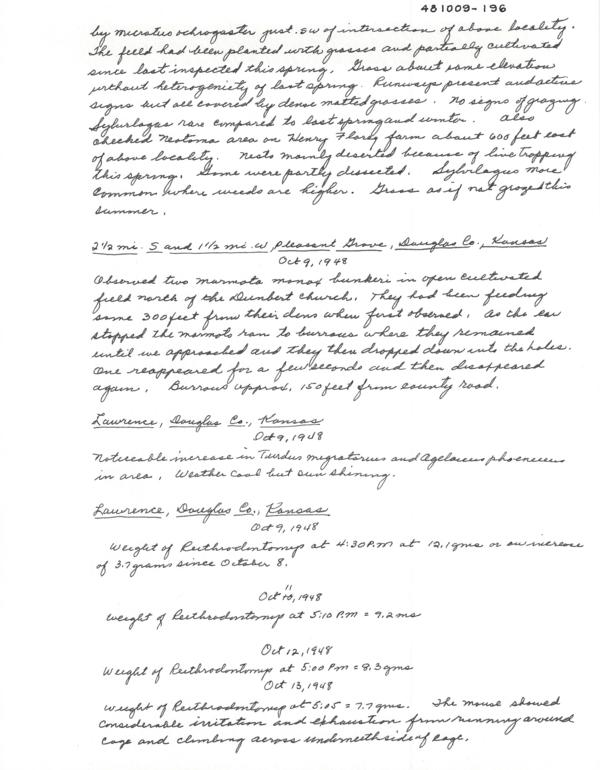 481009-196
by Microtus ochrogaster just SW of intersection of above locality.
The field had been planted with grasses and partially cultivated
since last inspected this spring. Grass about same elevation
without heterogeniety of last spring. Runways present and active
signs but all covered by dense matted grasses. No signs of grazing.
Sylvilagus rare compared to last spring and winter. Also
checked Neotoma area on Henry Flory farm about 600 feet east
of above locality. Nests mainly deserted because of live trapping
this spring. Some were partly dissected. Sylvilagus more
common where weeds are higher. Grass as if not grazed this
summer.
2 1/2 mi. S and 1 1/2 mi. W Pleasant Grove, Douglas Co., Kansas
Oct 9, 1948
Observed two marmota monax bunkeri in open cultivated
field north of the Dunbert church. They had been feeding
some 300 feet from their dens when first observed. As the car
stopped the marmots ran to burrows where they remained
until we approached and they then dropped down into the holes.
One reappeared for a few seconds and then disappeared
again. Burrows approx. 150 feet from county road.
Lawrence, Douglas Co., Kansas
Oct 9, 1948
Noticeable increase in Turdus migratorius and Agelaius phoeniceus
in area. Weather cool but sun shining.
Lawrence, Douglas Co., Kansas
Oct 9, 1948
Weight of Reithrodontomys at 4:30 P.M at 12.1 gms or an increase
of 3.7 grams since October 8.
11
Oct 10, 1948
Weight of Reithrodontomys at 5:10 P.M = 9.2 ms
Oct 12, 1948
Weight of Reithrodontomys at 5:00 Pm = 8.3 gms
Oct 13, 1948
Weight of Reithrodontomys at 5:05 = 7.7 gms. The mouse showed
considerable irritation and exhaustion from running around
cage and climbing across underneath side of cage.